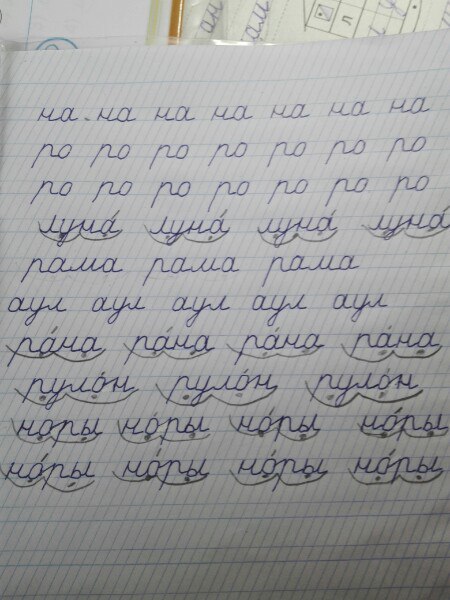 на на на на на на на
ро ро ро ро ро ро ро
ро ро ро ро ро ро ро
луна́ луна́ луна́ луна́
рама рама рама
аул аул аул аул аул
ра́на ра́на ра́на ра́на
руло́н руло́н руло́н
но́ры но́ры но́ры но́ры
но́ры но́ры но́ры но́ры